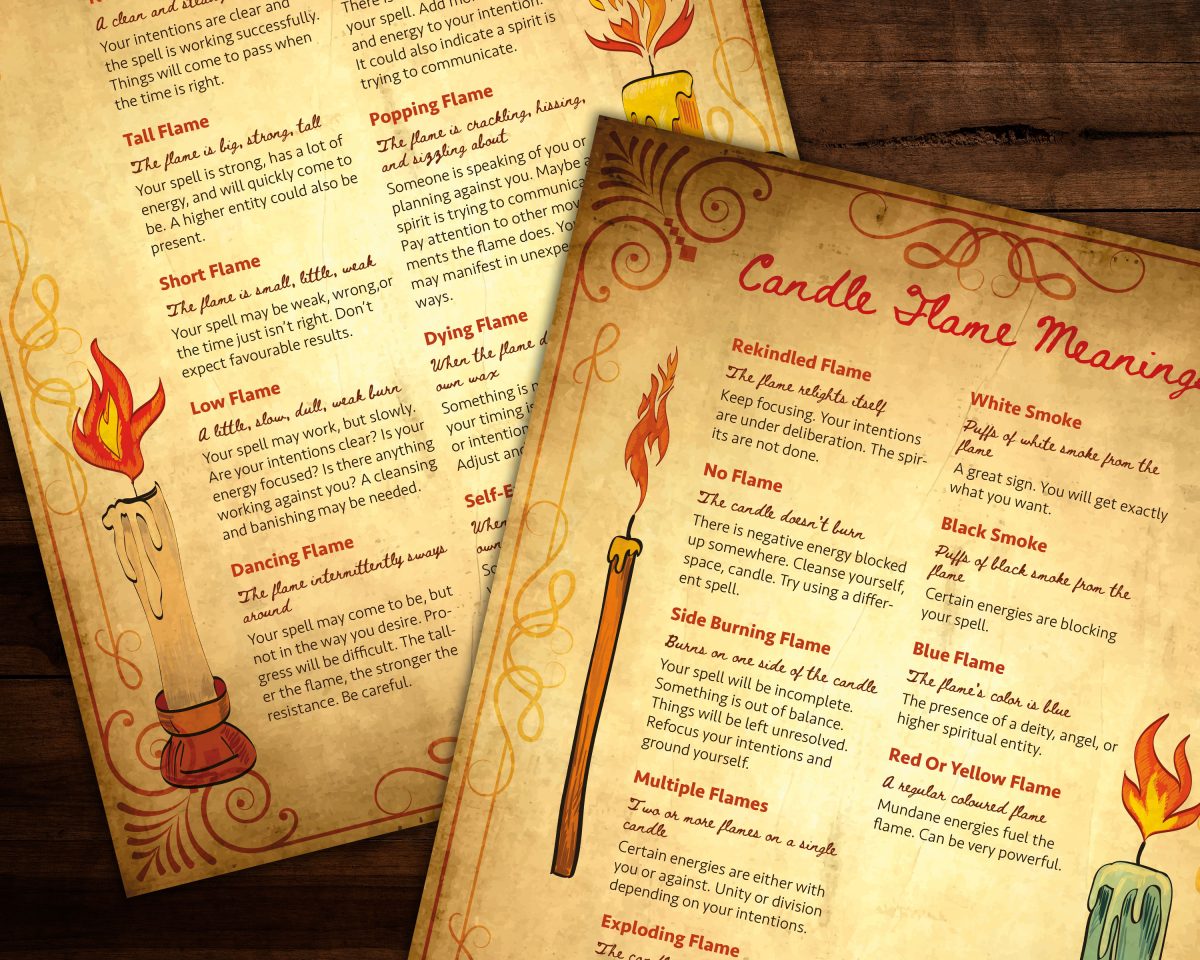 A clean and
Your intentions are clear and
the spell is working successfully.
Things will come to pass when
the time is right.
Tall Flame
The flame is big, strong, tall
Your spell is strong, has a lot of
energy, and will quickly come to
be. A higher entity could also be
present.
Short Flame
The flame is small, little, weak
Your spell may be weak, wrong,or
the time just isn't right. Don't
expect favourable results.
Low Flame
A little, slow, dull, weak burn
Your spell may work, but slowly.
Are your intentions clear? Is your
energy focused? Is there anything
working against you? A cleansing
and banishing may be needed.
Dancing Flame
The flame intermittently sways
around
Your spell may come to be, but
not in the way you desire. Pro-
gress will be difficult. The tall-
er the flame, the stronger the
resistance. Be careful.
your spell. Add
and energy to your intention.
It could also indicate a spirit is
trying to communicate.
Popping Flame
The flame is crackling, hissing,
and sizzling about
Someone is speaking of you or
planning against you. Maybe a
spirit is trying to
Pay attention to other
ments the flame does.
may manifest in
ways.
Dying Flame
When the flame
own wax
Something is
your timing is
or intention
Adjust
When
own
Candle Flame
Rekindled Flame
The flame relights itself
Keep focusing. Your intentions
are under deliberation. The spir-
its are not done.
No Flame
The candle doesn't burn
There is negative energy blocked
up somewhere. Cleanse yourself,
space, candle. Try using a differ-
ent spell.
Side Burning Flame
Burns on one side of the candle
Your spell will be incomplete.
Something is out of balance.
Things will be left unresolved.
Refocus your intentions and
ground yourself.
Multiple Flames
Two or more flames on a single
candle
Certain energies are either with
you or against. Unity or division
depending on your intentions.
Exploding Flame
The
White Smoke
Puffs of white smoke from the
flame
A great sign. You will get exactly
what you want.
Black Smoke
Puffs of black smoke from the
flame
Certain energies are blocking
your spell.
Blue Flame
The flame's color is blue
The presence of a deity, angel, or
higher spiritual entity.
Red Or Yellow Flame
A regular coloured flame
Mundane energies fuel the
flame. Can be very powerful.